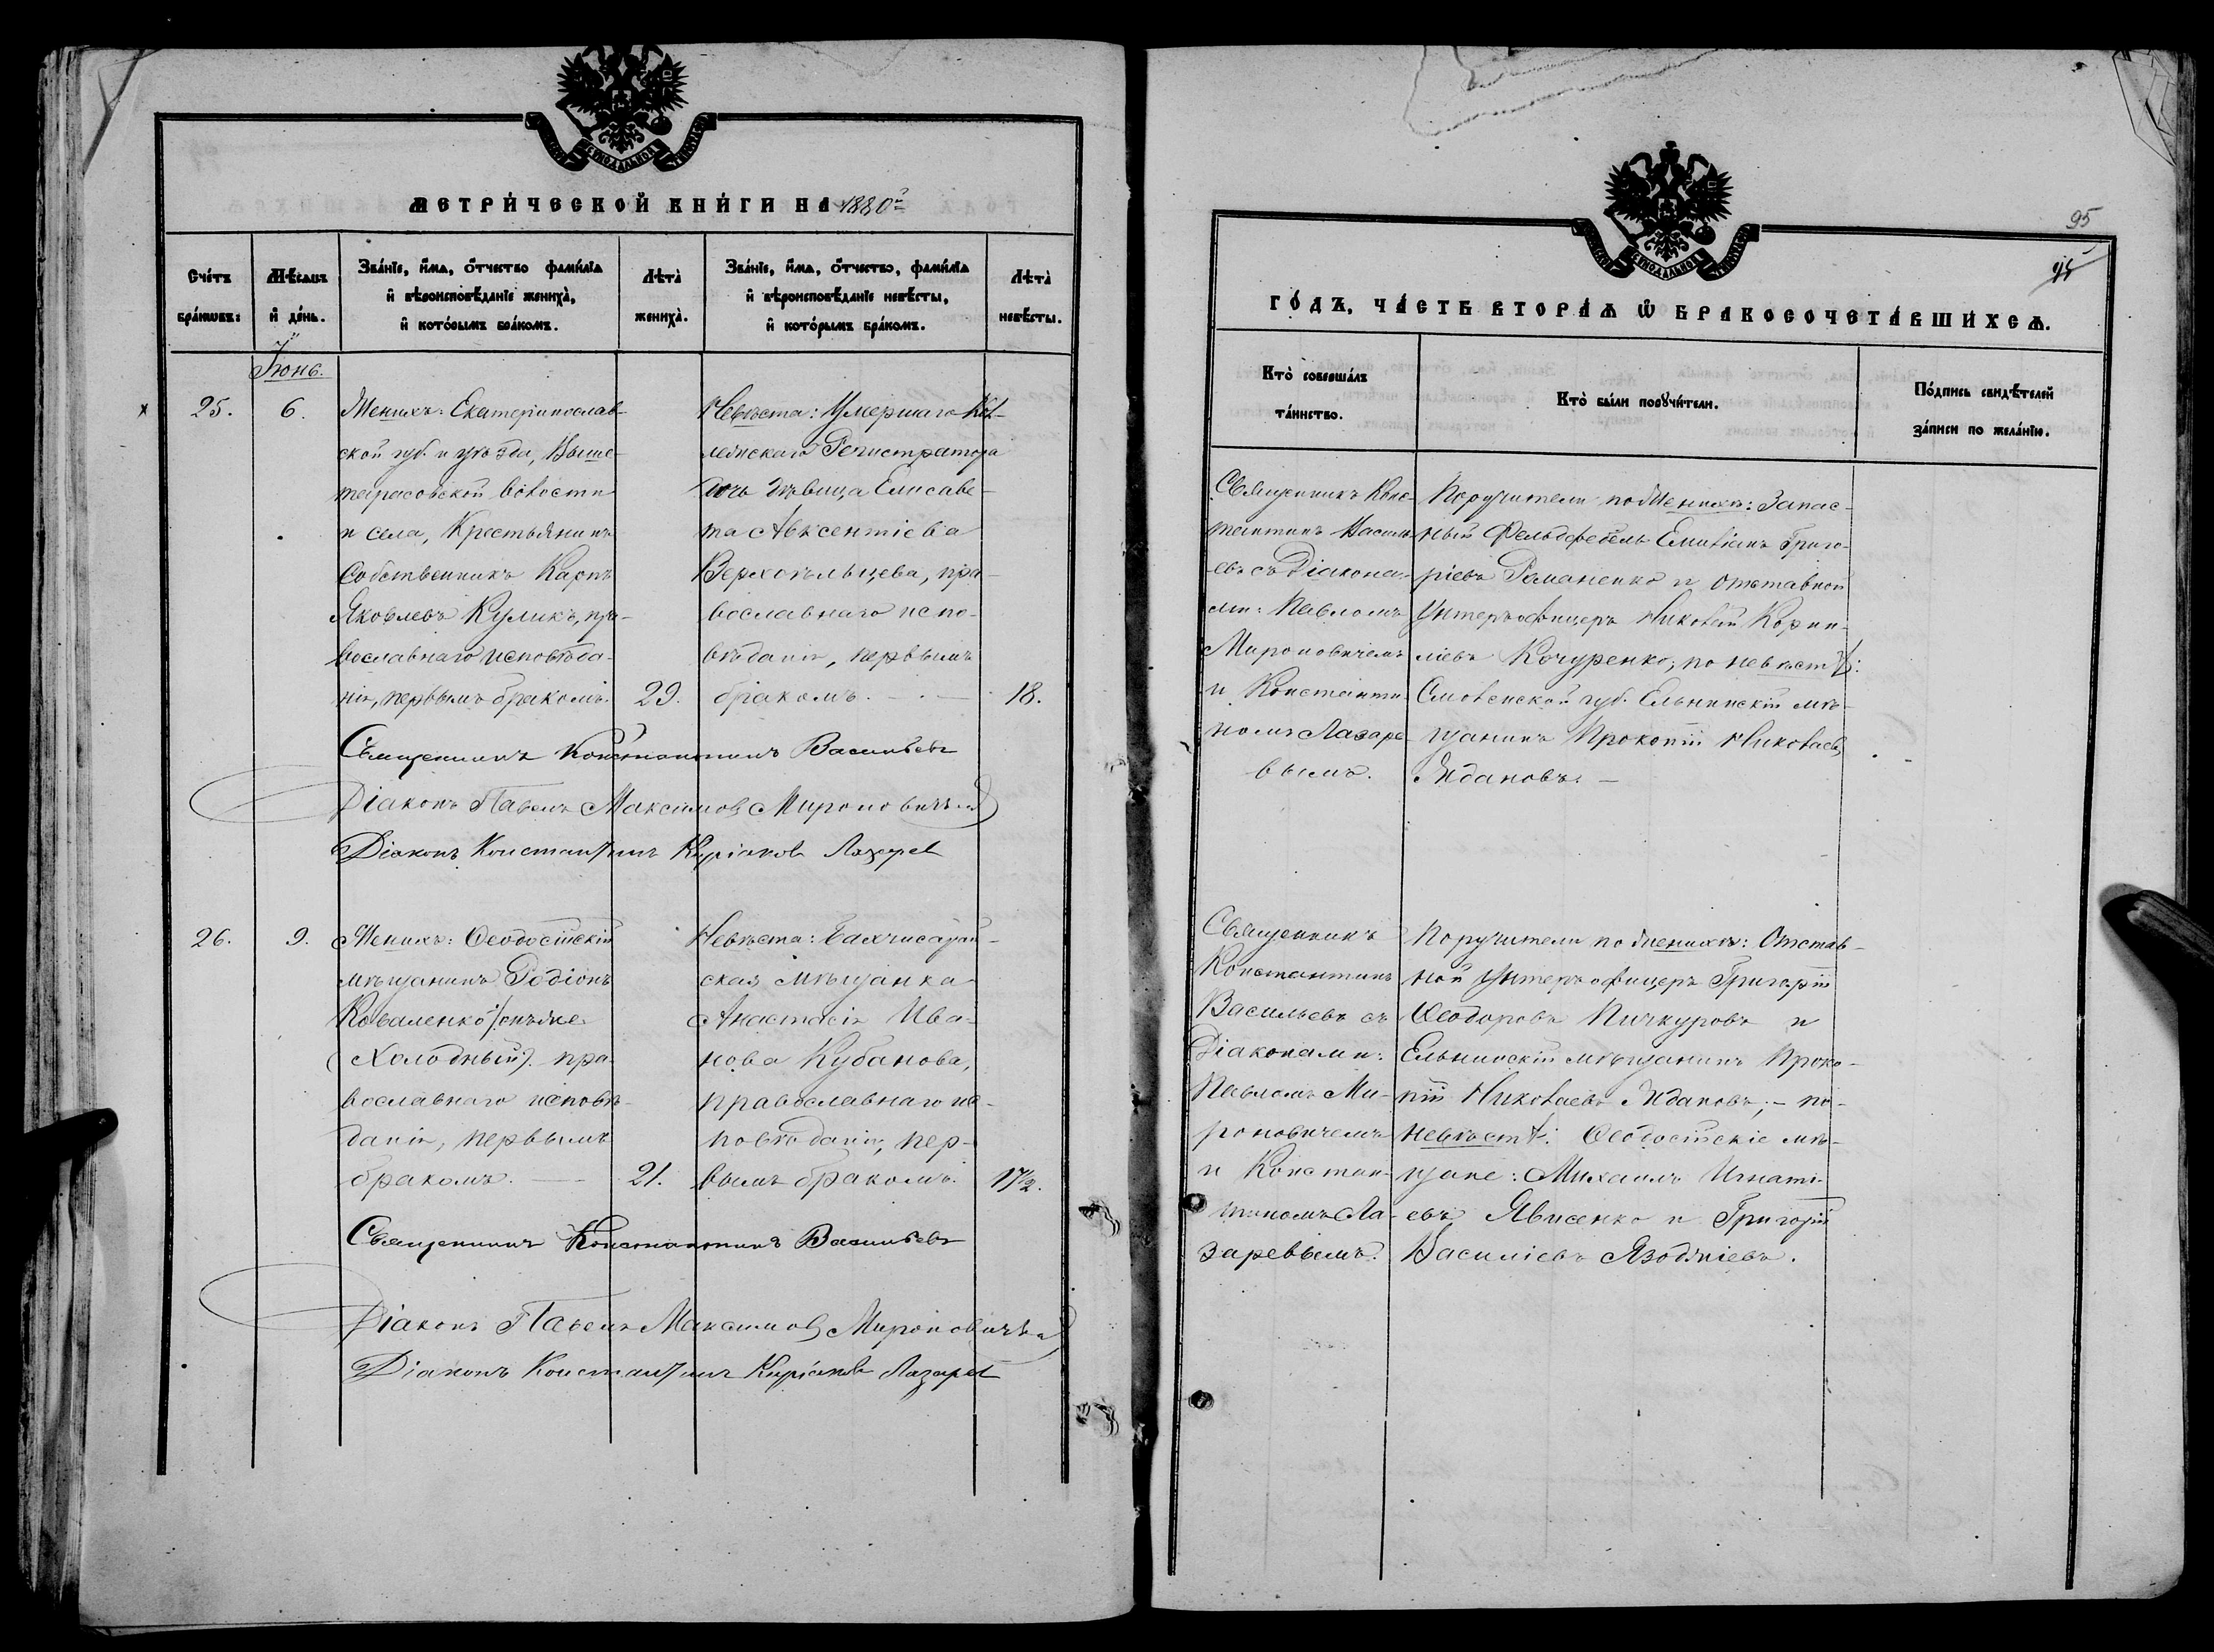 МЕТРИ́ЧЕСКОЙ КНИ́ГИ НА 1880й
Счéтъ бра́ковъ:
Мѣ́сяцъ и҆ де́нь.
Зва́нїе, и҆́мѧ, ѻ҆́тчество фами́лїѧ
и҆ вѣроисповѣ́данїе жениха̀,
и҆ кото́рымъ бра́комъ.
Лѣта̀ жениха̀.
Зва́нїе, и҆́мѧ, ѻ҆́тчество, фами́лїѧ
и҆ вѣроисповѣ́данїе невѣ́сты,
и҆ кото́рымъ бра́комъ.
Лѣта̀ невѣ́сты.
Іюнь.
25.
6.
Женихъ: Екатеринослав-
ской губ. и уѣзда, Выше-
тарасовской волости
и села, Крестьянинъ
Собственникъ Карпъ
Яковлевъ Куликъ, пра-
вославнаго исповѣда-
нія, первымъ бракомъ.
29.
Невѣста: Умершаго Кол-
лежскаго Регистратора
дочь дѣвица Елисаве-
та Авксентіева
Верхокѣльцева, пра-
вославнаго испо-
вѣданія, первымъ
бракомъ. —
18.
Священникъ Константинъ Васильевъ
Діаконъ Павелъ Максимовъ Мироновичъ
Діаконъ Константинъ Киріаковъ Лазарев
26.
9.
Женихъ: Ѳеодосійскій
мѣщанинъ Родіонъ
Коваленко (онъ же
Холодный) пра-
вославнаго исповѣ-
данія, первымъ
бракомъ. —
21.
Невѣста: Бахчисарай-
ская мѣщанка
Анастасія Ива-
нова Кубанова,
православнаго ис-
повѣданія, пер-
вымъ бракомъ.
17½.
Священникъ Константинъ Васильевъ
Діаконъ Павелъ Максимовъ Мироновичъ
Діаконъ Константинъ Киріаковъ Лазарев
95
95
ГО́ДЪ, ЧА́СТЬ ВТОРА́Ѧ Ѽ БРАКОСОЧЕТА́ВШИХСѦ.
Кто̀ соверша́лъ та́инство.
Кто̀ бы́ли порꙋчи́тели.
По́дпись свидѣ́телей
за́писи по жела́нїю.
Священникъ Конс-
тантинъ Василь-
евъ съ Діакона-
ми: Павломъ
Мироновичемъ
и Константи-
номъ Лазаре-
вымъ.
Поручители по Женихѣ: Запас-
ный Фельдфебель Емиліанъ Григо-
ріевъ Романенко и отставной
Унтеръ офицеръ Николай Корни-
ліевъ Качуренко; по невѣстѣ:
Смоленской губ. Ельнинскій мѣ-
щанинъ Прокопій Николаевъ
Ждановъ. —
Священникъ
Константинъ
Васильевъ съ
Діаконами:
Павломъ Ми-
роновичемъ
и Констан-
тиномъ Ла-
заревымъ.
Поручители по женихѣ: Отстав-
ной Унтеръ офицеръ Григорій
Ѳеодоровъ Пичкуровъ и
Ельнинскій мѣщанинъ Проко-
пій Николаевъ Ждановъ; — по
невѣстѣ: Ѳеодосійскіе мѣ-
щане: Михаилъ Игнаті-
евъ Явисенко и Григорій
Василіевъ Язаджіевъ.